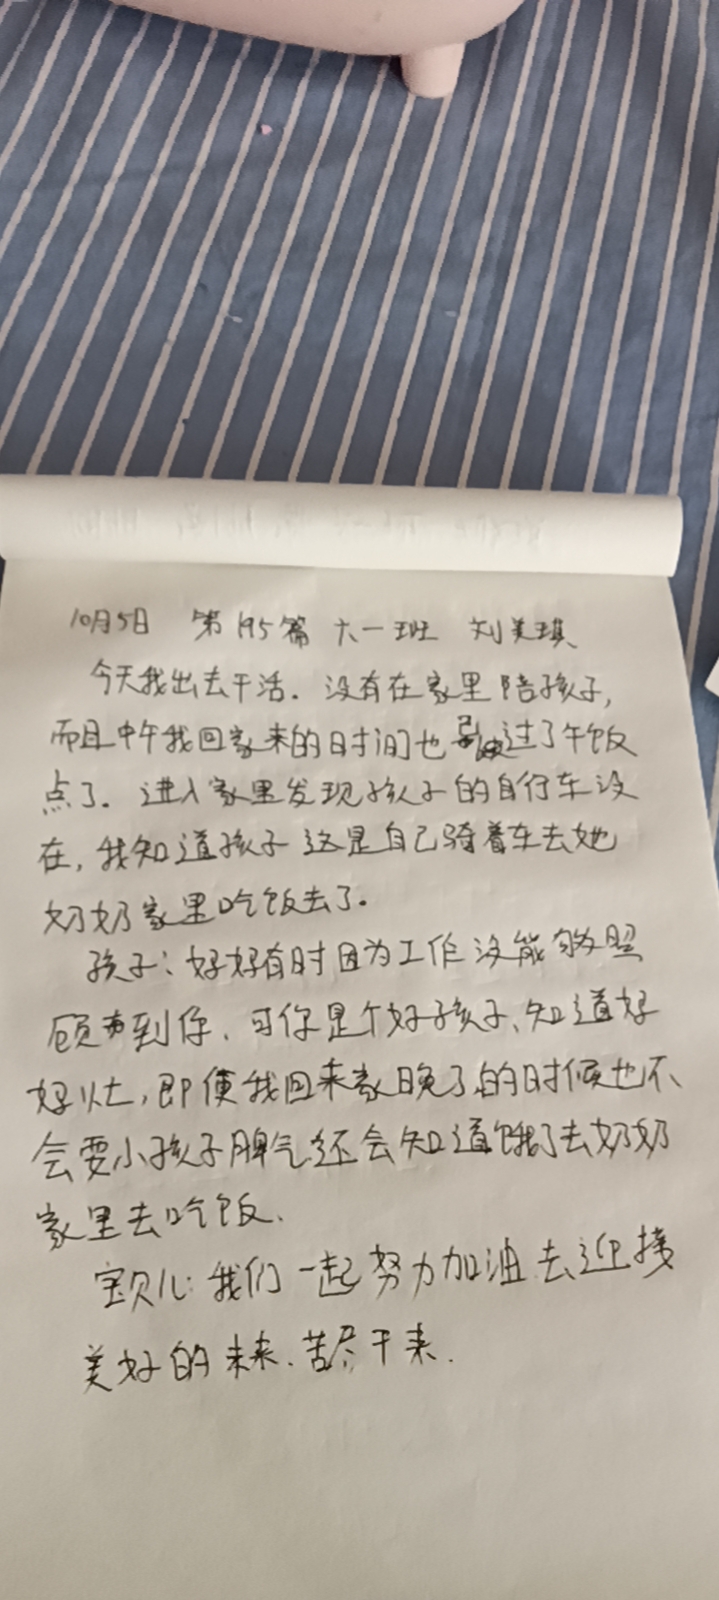 10月5日 第195篇 六一班 刘美琪
今天我出去干活. 没有在家里陪孩子,
而且中午我回家来的时间也 过了午饭
点了. 进入家里发现孩子的自行车没
在, 我知道孩子这是自己骑着车去她
奶奶家里吃饭去了.
孩子: 好好有时因为工作没能够照
顾 到你, 可你是个好孩子, 知道好
好 , 即使我回来家晚了的时候也不
会耍小孩子脾气还会知道饿了去奶奶
家里去吃饭.
宝贝儿: 我们一起努力加油去迎接
美好的未来. 苦尽干来.